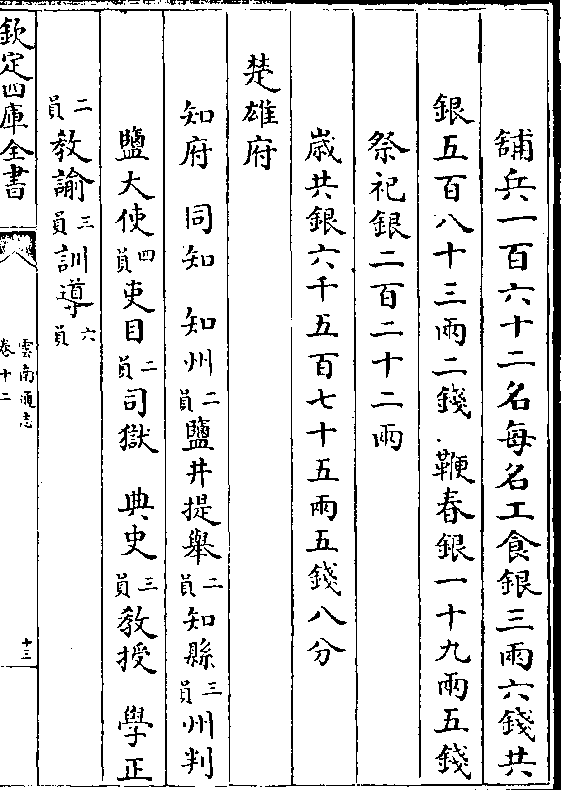 舖兵一百六十二名每名工食銀三兩六錢共
銀五百八十三兩二錢 鞭春銀一十九兩五錢
祭祀銀二百二十二兩
歲共銀六千五百七十五兩五錢八分
楚雄府
知府 同知 知州二員鹽井提舉二員知縣三員州判
鹽大使四員吏目二員司獄 典史三員教授 學正
二員教諭三員訓導六員
欽定四庫全書
雲南通志
卷十二
十三